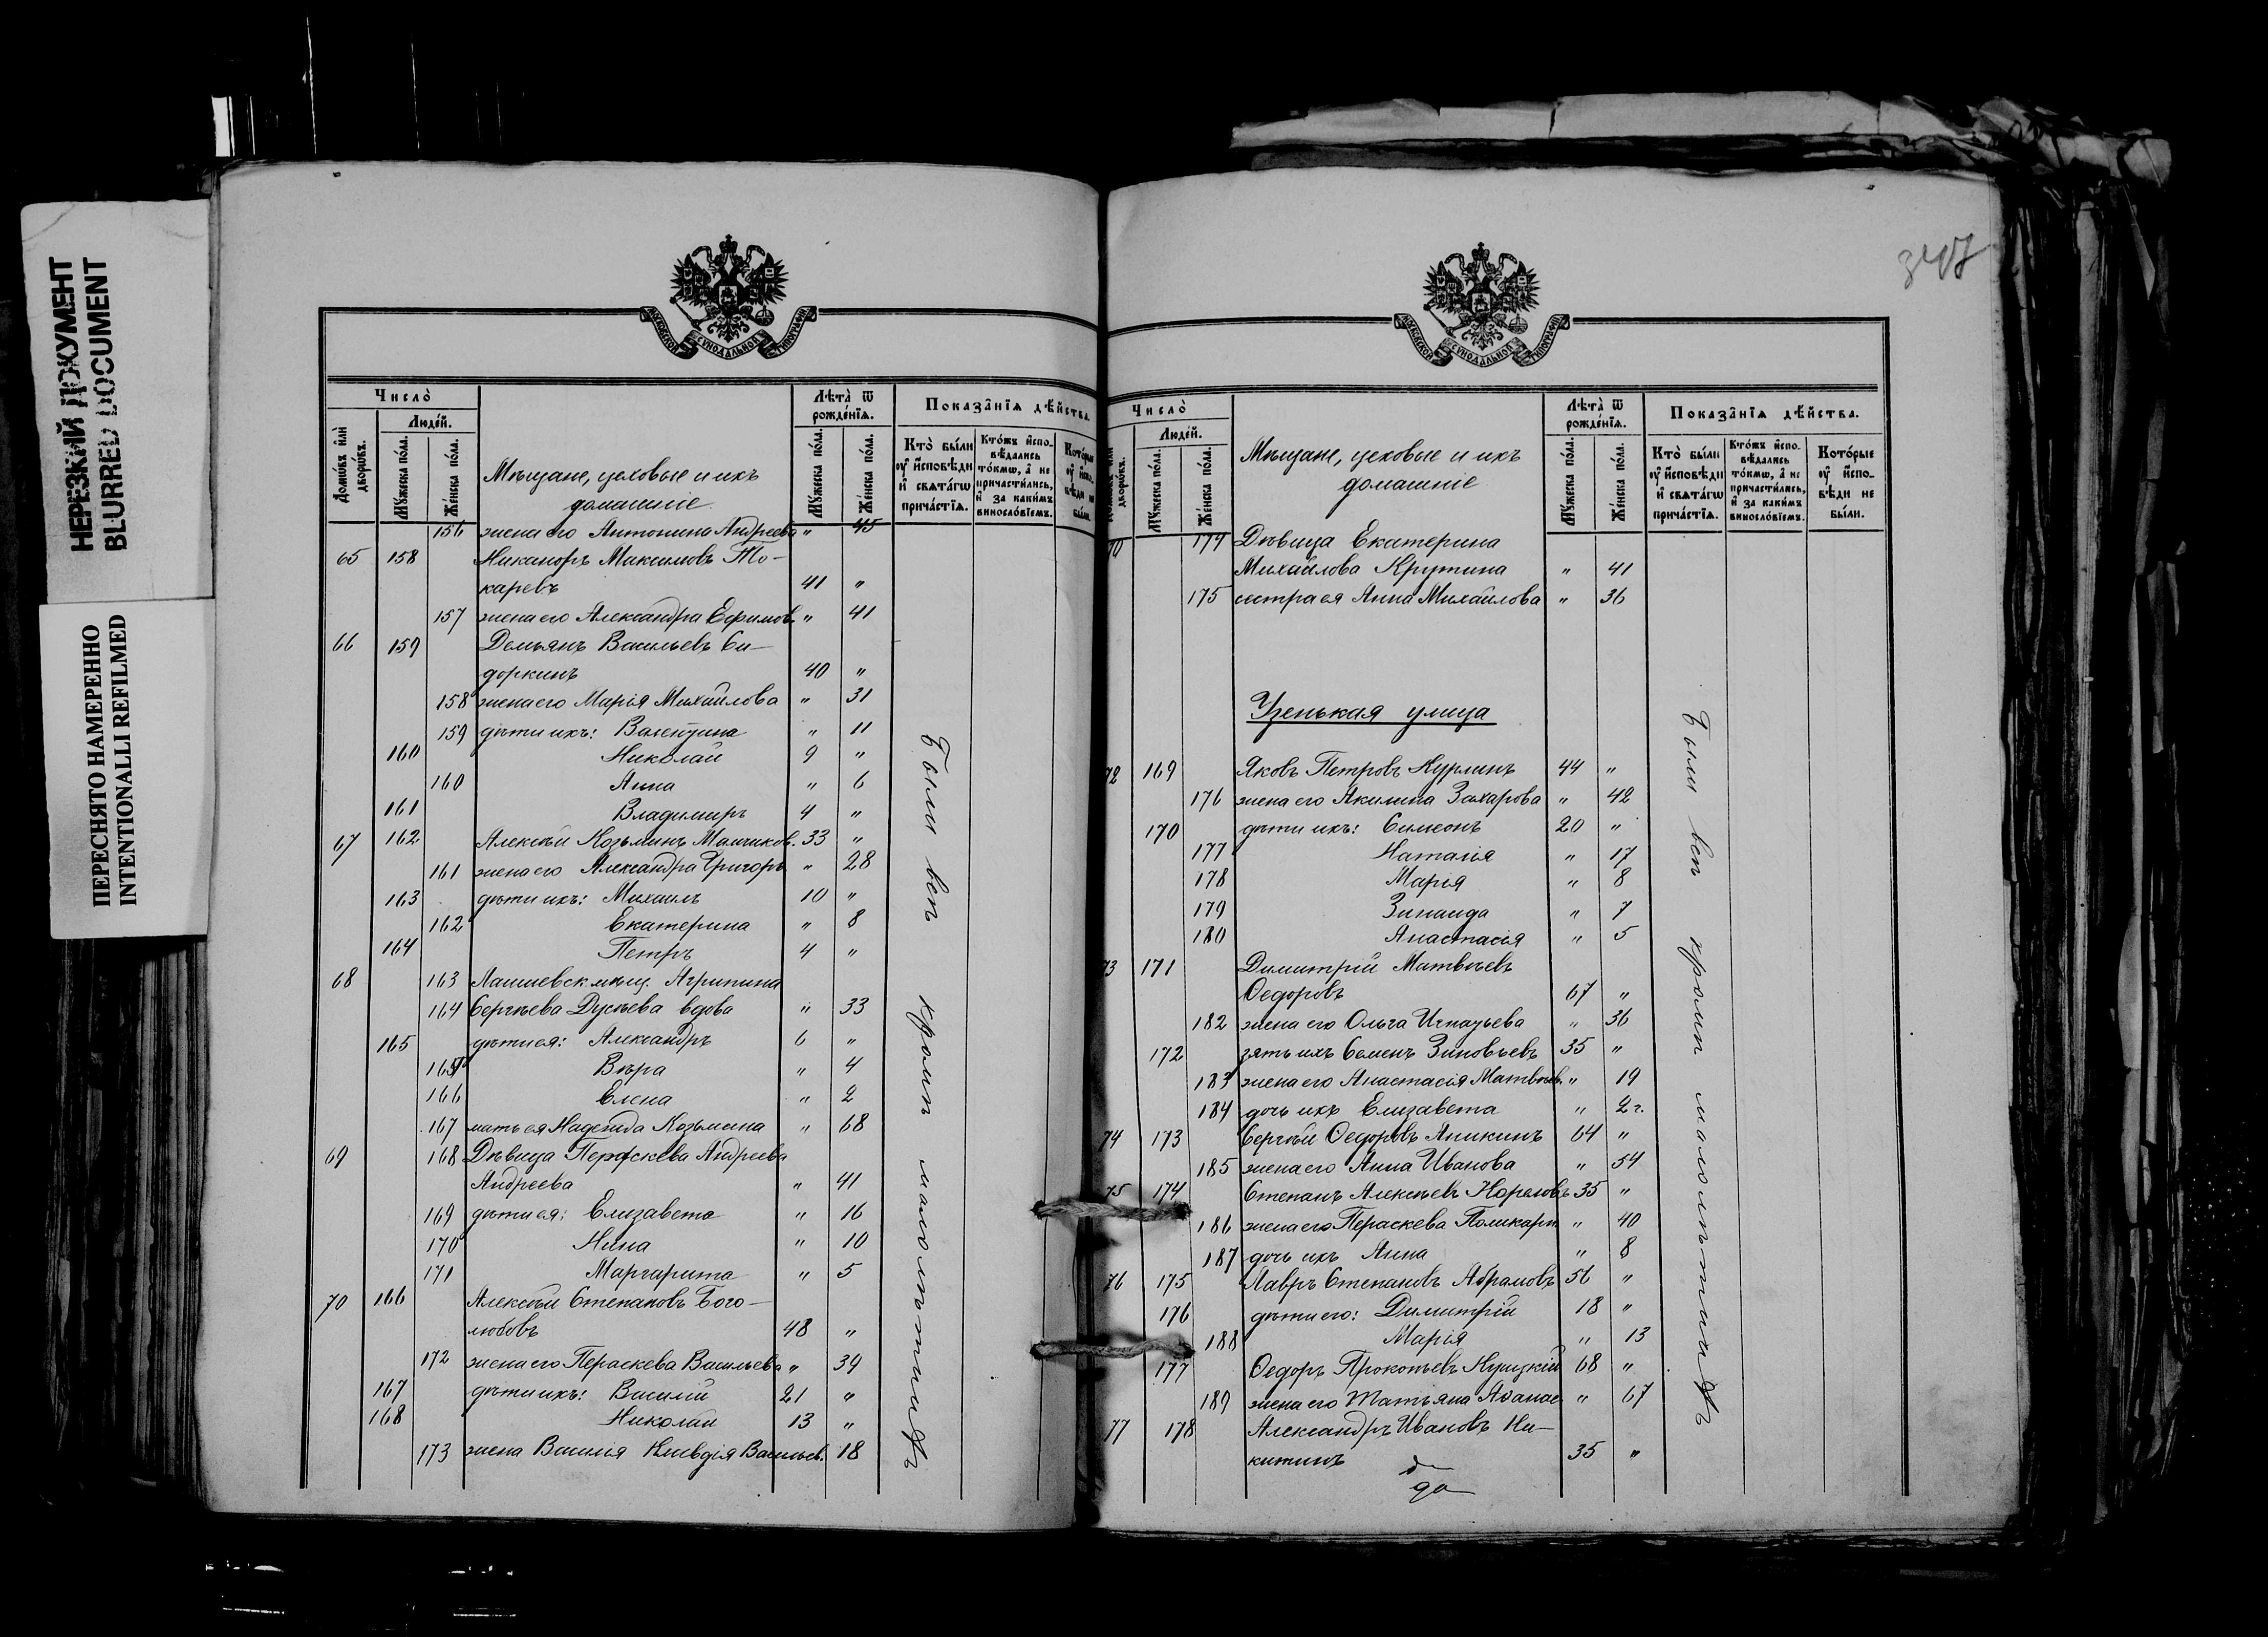 НЕРЕЗКИЙ ДОКУМЕНТ
BLURRED DOCUMENT
ПЕРЕСНЯТО НАМЕРЕННО
INTENTIONALLI REFILMED
МОСКОВСКОЙ СУНОДАЛЬНОЙ ТИПОГРАФІИ
Число̀
Людей.
Домѡвъ и҆лѝ дворѡвъ.
Мꙋжеска по́ла.
Же́нска по́ла.
Мѣщане, цеховые и ихъ
домашніе
Лѣта̀ ѿ рожде́нїѧ.
Мꙋжеска по́ла.
Же́нска по́ла.
Показа̑нїѧ дѣ́йства.
Кто̀ бы́ли ᲂу҆ и҆сповѣди и҆ свѧта́гѡ прича́стїѧ.
Кто́жъ и҆спо- вѣдались то́кмѡ, а҆ не причасти́лись, и҆ за каки́мъ винословїемъ.
Кото́рые ᲂу҆ и҆спо- вѣди не бы́ли.
156 жена его Антонина Андреева " 45
65 158 Никаноръ Максимовъ То-
каревъ 41 "
157 жена его Александра Ефимов. " 41
66 159 Демьянъ Васильевъ Си-
доркинъ 40 "
158 жена его Марія Михайлова " 31
159 дѣти ихъ: Валентина " 11
160 Николай 9 "
160 Анна " 6
161 Владимиръ 4 "
67 162 Алексѣй Козьминъ 33 "
161 жена его Александра Григорь " 28
163 дѣти ихъ: Михаилъ 10 "
162 Екатерина " 8
164 Петръ 4 "
68 163 Лаишевск. мѣщ. Агрипина
164 Сергѣева Дусѣева вдова " 33
165 дѣти ея: Александръ 6 "
165 Вѣра " 4
166 Елена " 2
167 мать ея Надежда Козьмина " 68
69 168 Дѣвица Параскева Андреева
Андреева " 41
169 дѣти ея: Елизавета " 16
170 Нина " 10
171 Маргарита " 5
70 166 Алексѣй Степановъ Бого-
любовъ 48 "
172 жена его Параскева Васильева " 39
167 дѣти ихъ: Василій 21 "
168 Николай 13 "
173 жена Василія Васильев. 18
Были всѣ кромѣ малолѣтнихъ
МОСКОВСКОЙ СУНОДАЛЬНОЙ ТИПОГРАФІИ
Число̀
Людей.
дворѡвъ.
Мꙋжеска по́ла.
Же́нска по́ла.
Мѣщане, цеховые и ихъ
домашніе
Лѣта̀ ѿ рожде́нїѧ.
Мꙋжеска по́ла.
Же́нска по́ла.
Показа̑нїѧ дѣ́йства.
Кто̀ бы́ли ᲂу҆ и҆сповѣди и҆ свѧта́гѡ прича́стїѧ.
Кто́жъ и҆спо- вѣдались то́кмѡ, а҆ не причасти́лись, и҆ за каки́мъ винословїемъ.
Кото́рые ᲂу҆ и҆спо- вѣди не бы́ли.
70 174 Дѣвица Екатерина
Михайлова Крутина " 41
175 сестра ея Анна Михайлова " 36
Узенькая улица
72 169 Яковъ Петровъ Курлинъ 44 "
176 жена его Акилина Захарова " 42
170 дѣти ихъ: Симеонъ 20 "
177 Наталія " 17
178 Марія " 8
179 Зинаида " 7
180 Анастасія " 5
73 171 Димитрій Матвѣевъ
Ѳедоровъ 67 "
182 жена его Ольга Игнатьева " 36
172 зять ихъ Семенъ Зиновьевъ 35 "
183 жена его Анастасія Матвѣев. " 19
184 дочь ихъ Елизавета " 2 г.
74 173 Сергѣй Ѳедоровъ Аникинъ 64 "
185 жена его Анна Иванова " 54
75 174 Степанъ Алексѣевъ 35 "
186 жена его Параскева Поликарп " 40
187 дочь ихъ Анна " 8
76 175 Лавръ Степановъ Абрамовъ 56 "
176 дѣти его: Димитрій 18 "
188 Марія " 13
177 Ѳедоръ Прокопьевъ 68 "
189 жена его Татьяна Аѳанас " 67
77 178 Александръ Ивановъ Ни-
китинъ 35 "
Были всѣ кромѣ малолѣтнихъ